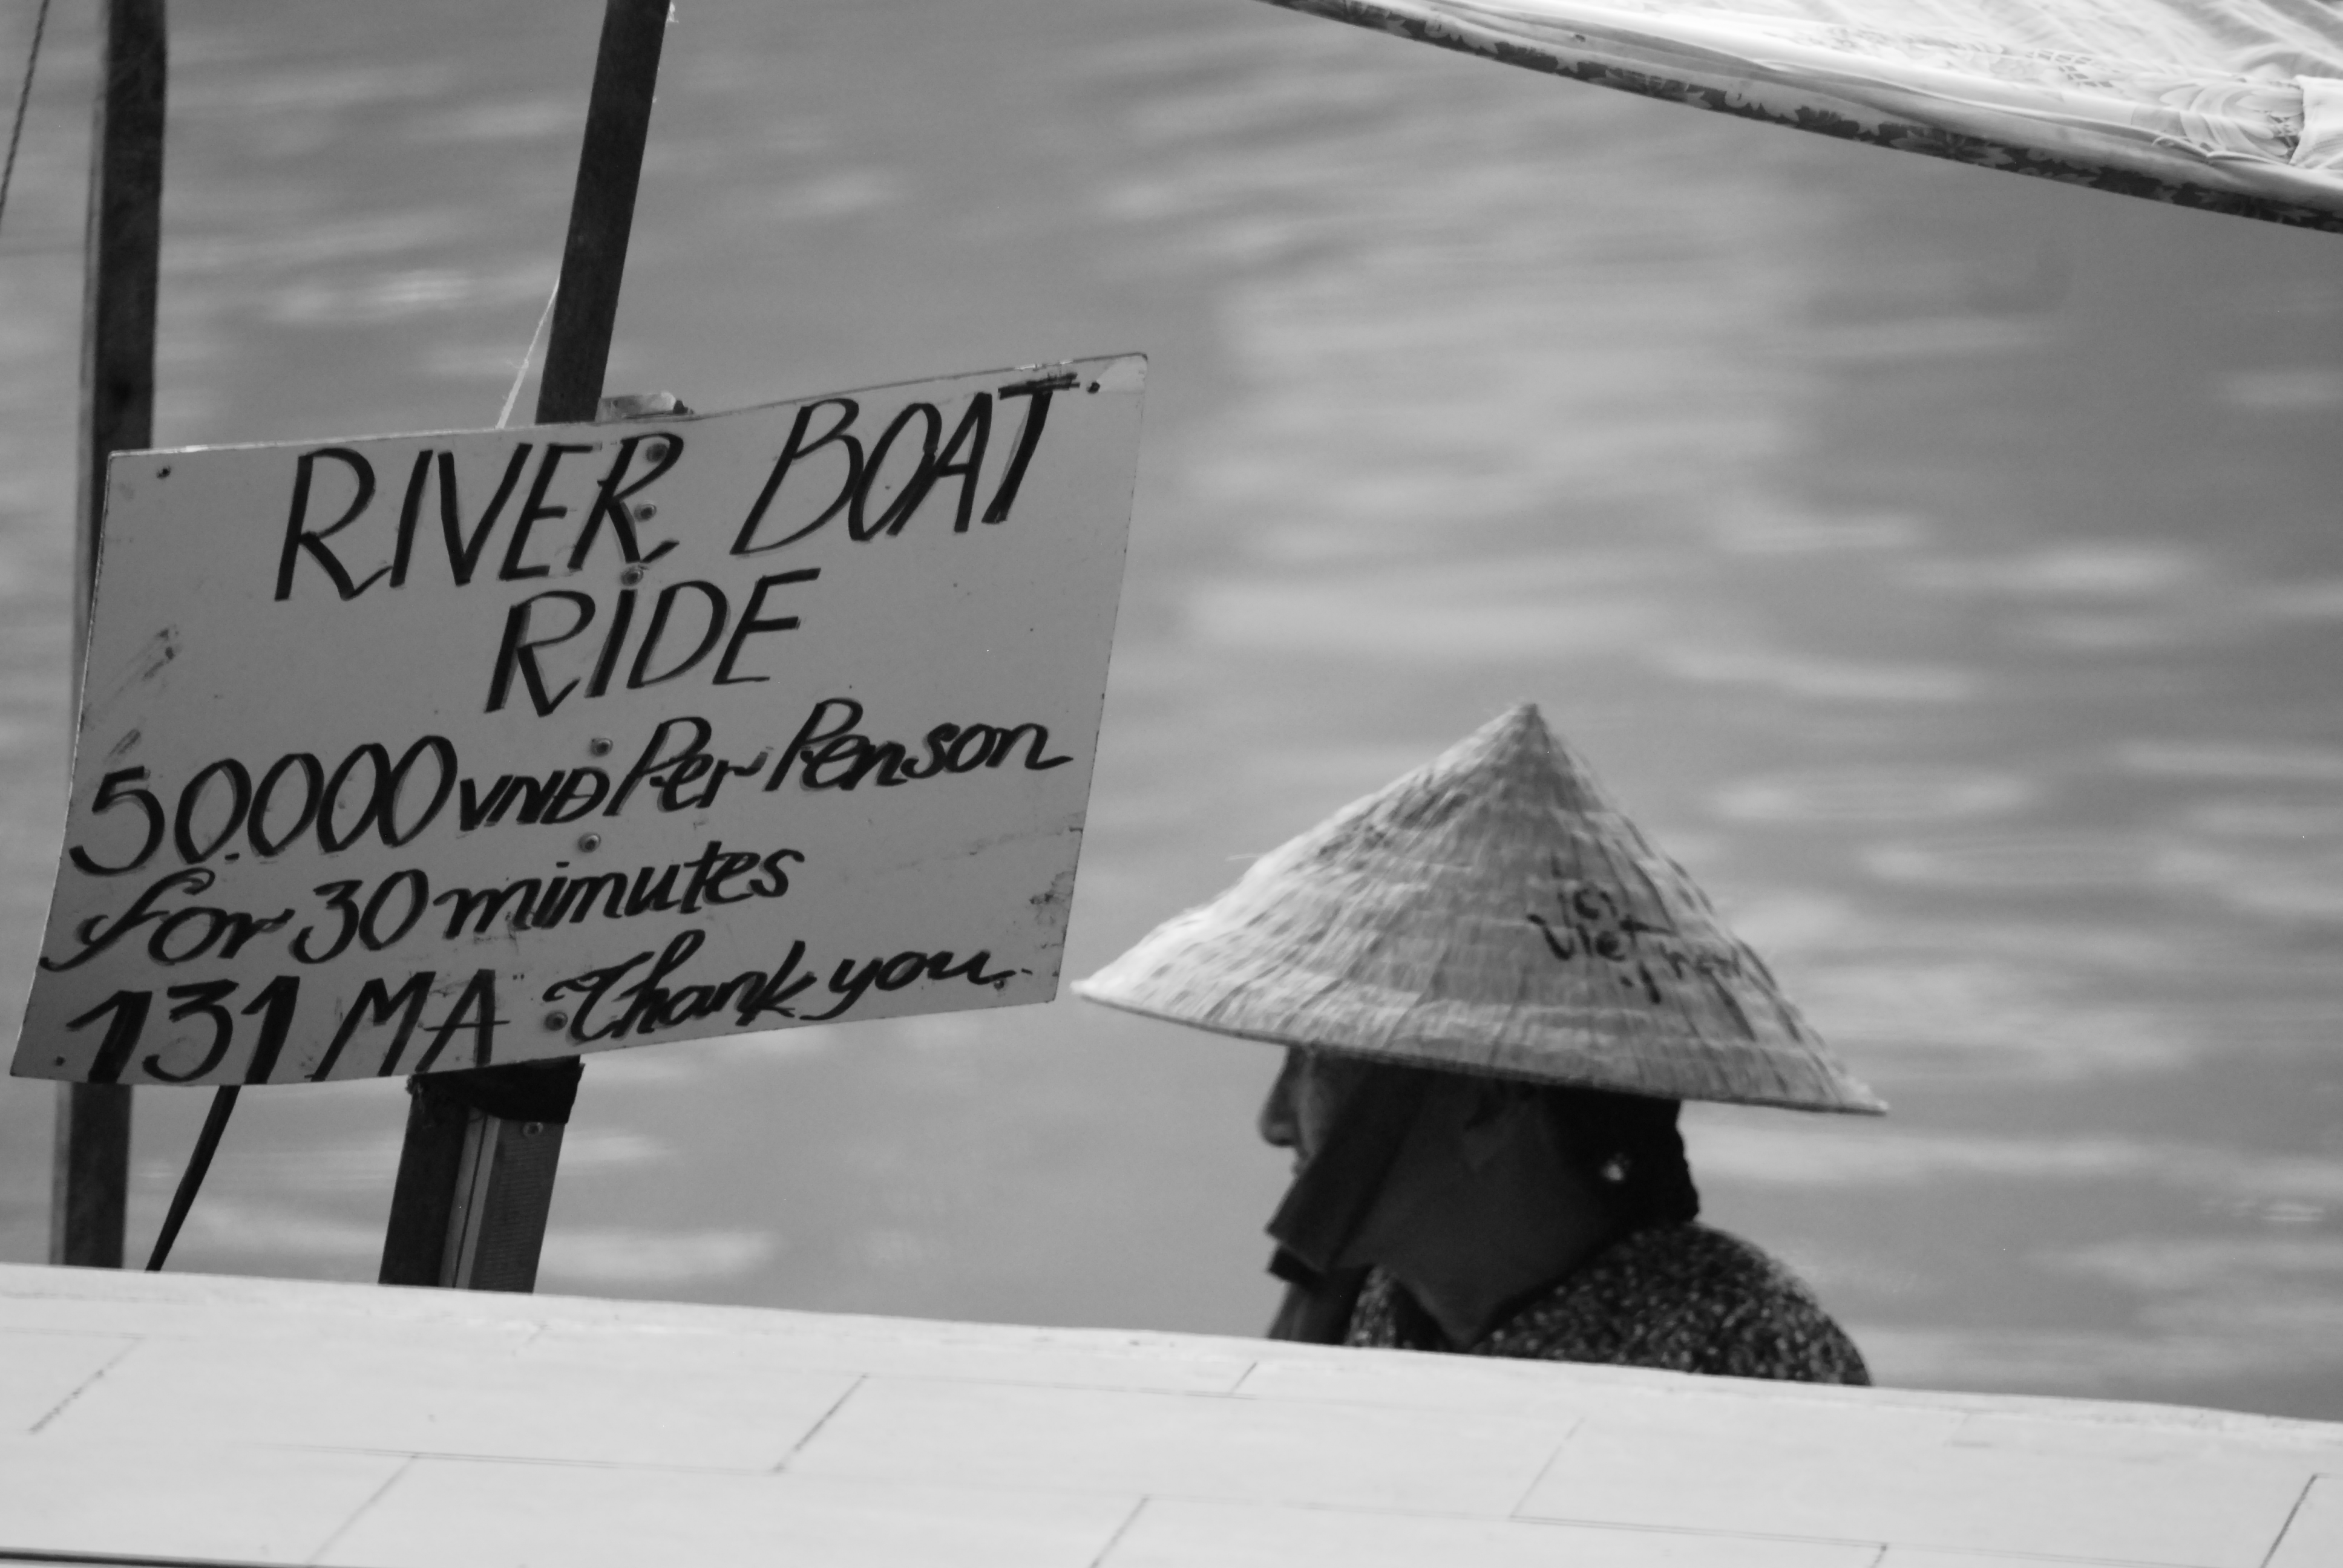 RIVER BOAT
RIDE
50.000 VNĐ Per Penson
for 30 minutes
131 MA Thank you.
Việt nam